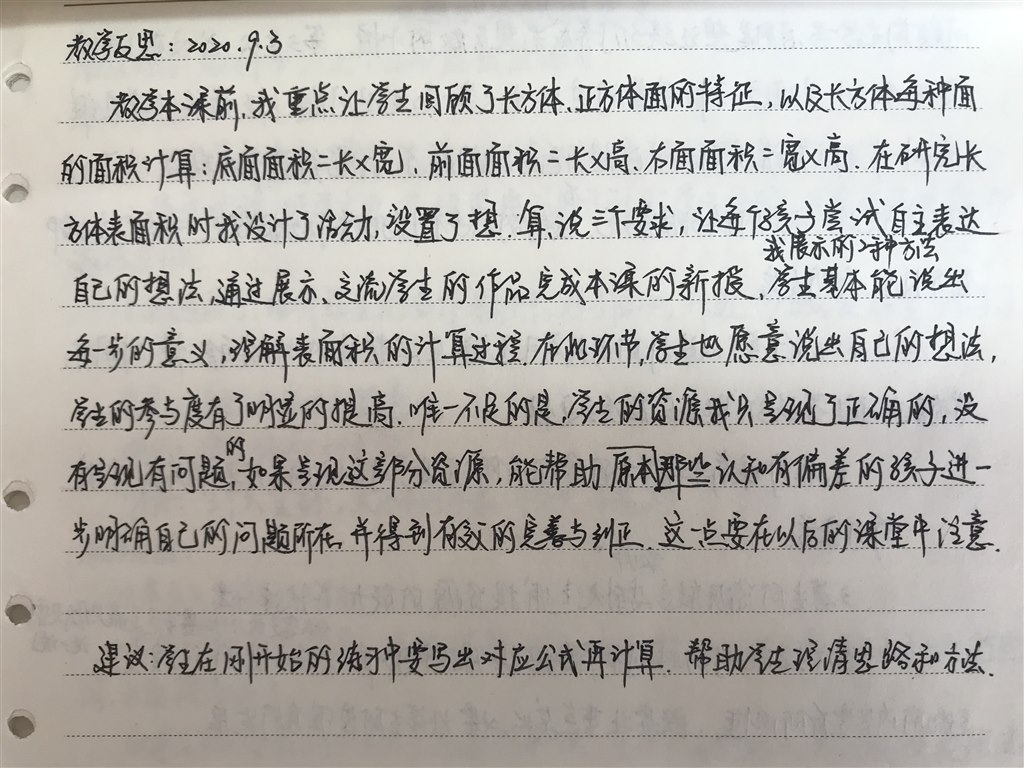 教学反思：2020.9.3
教学本课前，我重点让学生回顾了长方体、正方体面的特征，以及长方体每种面
的面积计算：底面面积=长×宽、前面面积=长×高、右面面积=宽×高. 在研究长
方体表面积时我设计了活动，设置了想、算、说三个要求，让每个孩子尝试自主表达
我展示的2种方法
自己的想法，通过展示、交流学生的作品完成本课的新授，学生基本能说出
每一步的意义，理解表面积的计算过程. 在此环节，学生也愿意说出自己的想法，
学生的参与度有了明显的提高. 唯一不足的是，学生的资源我只呈现了正确的，没
有呈现有问题的，如果呈现这部分资源，能帮助原本那些认知有偏差的孩子进一
步明确自己的问题所在，并得到有效的完善与纠正. 这一点要在以后的课堂中注意.
建议：学生在刚开始的练习中要写出对应公式再计算. 帮助学生理清思路和方法.